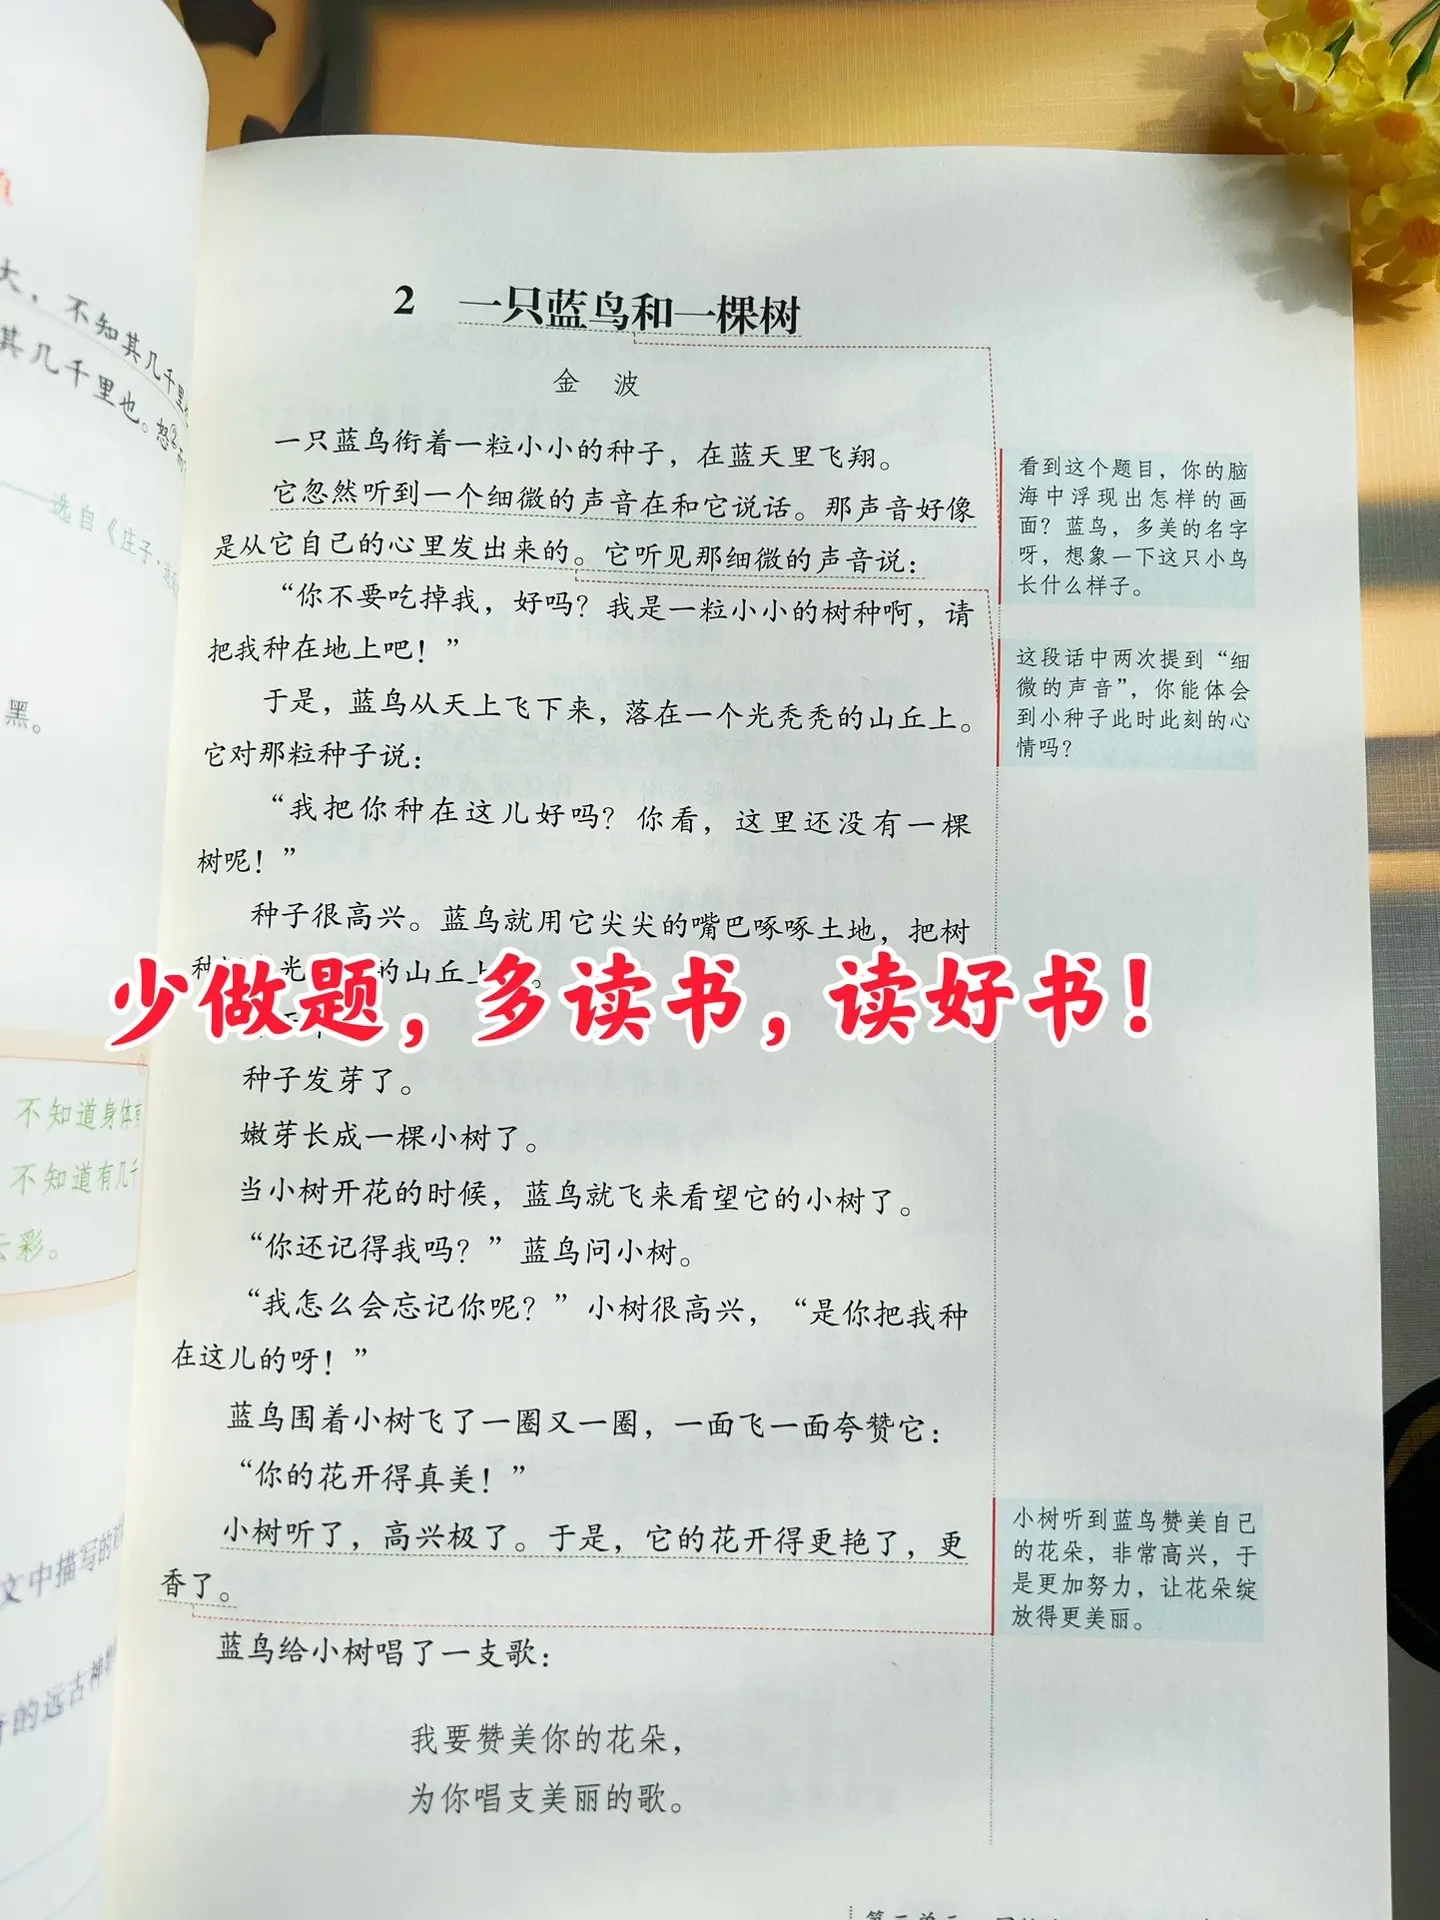 大，不知其几千里也
其几千里也。怒②而
——选自《庄子·
黑。
不知道身体有
不知道有几千
云彩。
文中描写的
奇的远古神
2 一只蓝鸟和一棵树
金 波
一只蓝鸟衔着一粒小小的种子，在蓝天里飞翔。
它忽然听到一个细微的声音在和它说话。那声音好像
是从它自己的心里发出来的。它听见那细微的声音说：
“你不要吃掉我，好吗？我是一粒小小的树种啊，请
把我种在地上吧！”
于是，蓝鸟从天上飞下来，落在一个光秃秃的山丘上。
它对那粒种子说：
“我把你种在这儿好吗？你看，这里还没有一棵
树呢！”
种子很高兴。蓝鸟就用它尖尖的嘴巴啄啄土地，把树
种 光 的山丘上 。
少做题，多读书，读好书！
种子发芽了。
嫩芽长成一棵小树了。
当小树开花的时候，蓝鸟就飞来看望它的小树了。
“你还记得我吗？”蓝鸟问小树。
“我怎么会忘记你呢？”小树很高兴，“是你把我种
在这儿的呀！”
蓝鸟围着小树飞了一圈又一圈，一面飞一面夸赞它：
“你的花开得真美！”
小树听了，高兴极了。于是，它的花开得更艳了，更
香了。
蓝鸟给小树唱了一支歌：
我要赞美你的花朵，
为你唱支美丽的歌。
看到这个题目，你的脑
海中浮现出怎样的画
面？蓝鸟，多美的名字
呀，想象一下这只小鸟
长什么样子。
这段话中两次提到“细
微的声音”，你能体会
到小种子此时此刻的心
情吗？
小树听到蓝鸟赞美自己
的花朵，非常高兴，于
是更加努力，让花朵绽
放得更美丽。